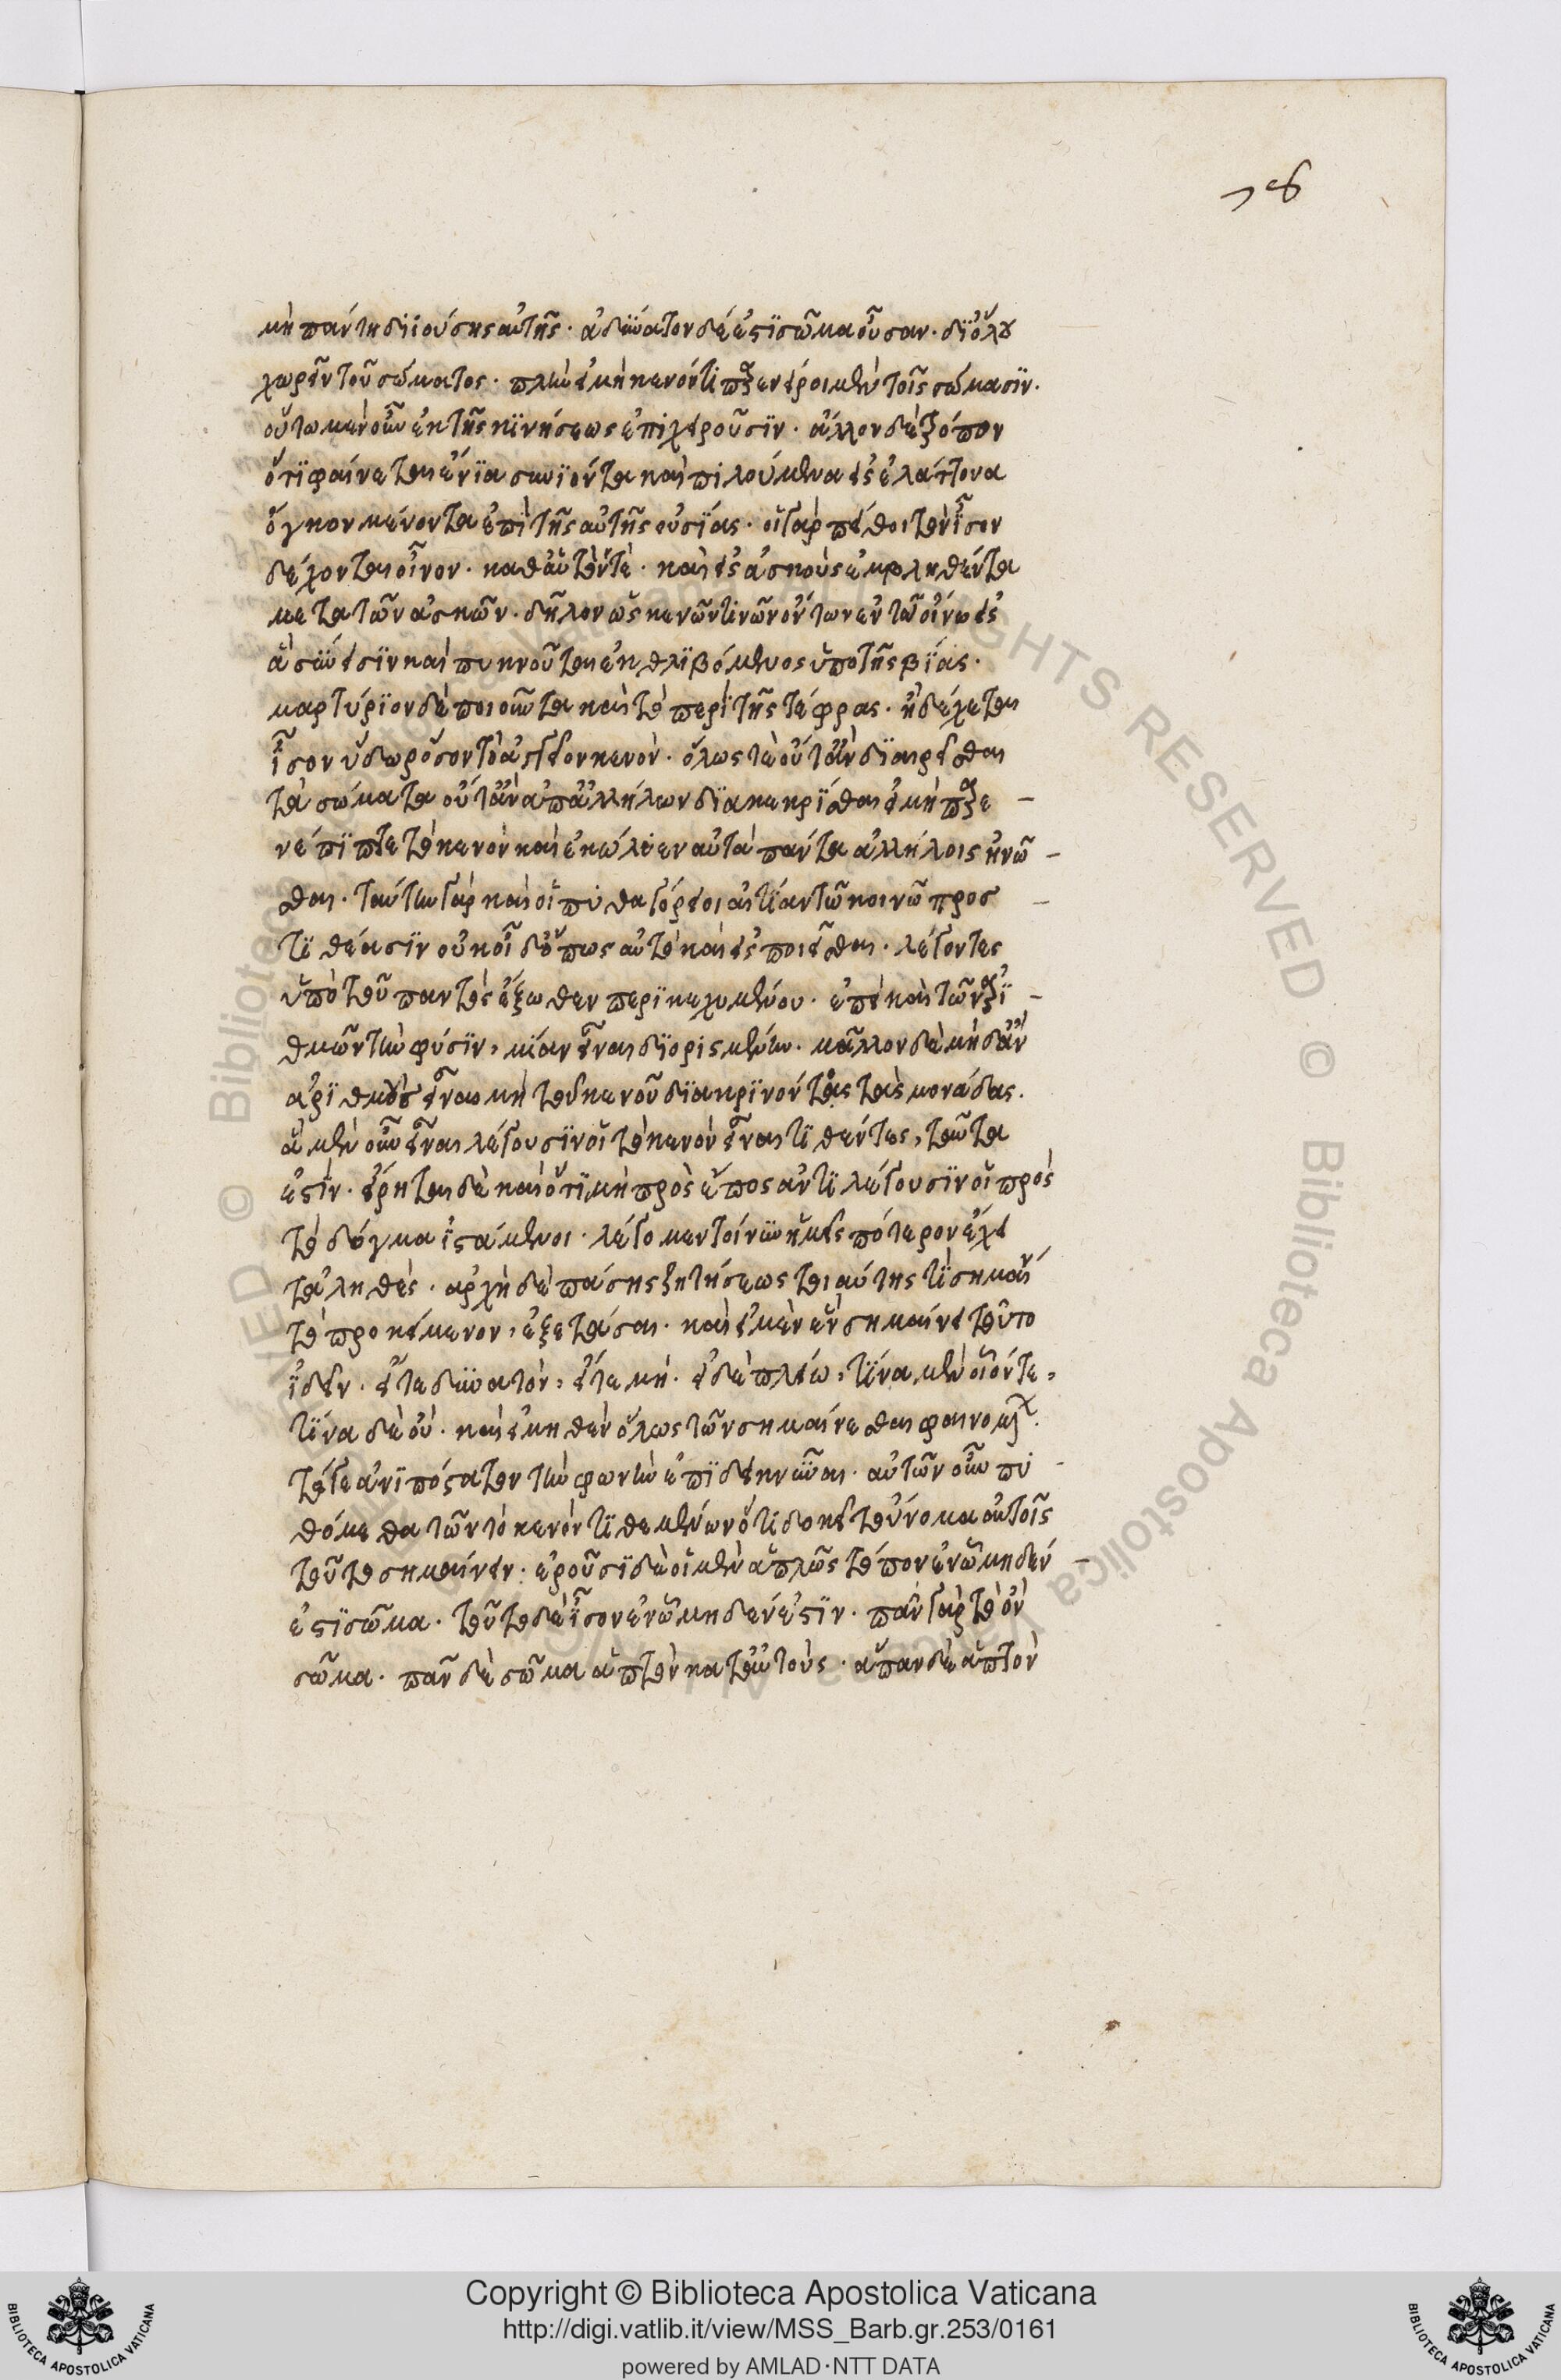 μὴ πάντη διϊούσης αὐτῆς. ἀδύνατον δέ ἐστὶ σῶμα οὖσαν. δι ὅλου
χωρεῖν τοῦ σώματος. πλὴν εἰ μὴ κενόν τι παρενείροιμεν τοῖς σώμασϊν.
οὕτω μὲν οὖν ἐκ τῆς κϊνήσεως ἐπιχειροῦσϊν. ἄλλον δὲ τρόπον
ὅτϊ φαίνεται ἐνϊα συνϊόντα καὶ πιλούμενα εἰς ἐλάττονα
ὄγκον μένοντα ἐπὶ τῆς αὐτῆς οὐσϊας. οἱ γὰρ πίθοι τὸν ἶσον
δέχονται οἶνον. καθ αὑτόν τὲ. καὶ εἰς ἀσκοὺς ἐμβληθέντα
μετα τῶν ἀσκῶν. δῆλον ὡς κενῶν τινῶν ὄντων ἐν τῶ οἴνω εἰς
ἃ σϋνεισϊν καὶ πυκνοῦται ἐκθλϊβόμενος ὑπο τῆς βϊας.
μαρτύρϊον δὲ ποιοῦνται καὶ τὸ περὶ τῆς τέφρας. ἣ δέχεται
ἶσον ὕδωρ ὅσον τὸ ἀγγεῖον κενόν. ὅλως τὲ οὔτ ἂν δϊαιρεῖσθαι
τὰ σώματα οὔτ ἂν ἀπ ἀλλήλων δϊακεκρίσθαι εἰ μὴ παρε-
νέπϊπτε τὸ κενὸν καὶ ἐκώλυεν αὐτὰ πάντα ἀλλήλοις ἡνῶ-
σθαι. ταύτην γὰρ καὶ οἱ πυθαγόρειοι αἰτίαν τῶ κοινῶ προσ-
τϊθέασϊν οὐκ οἶδ ὅπως αὐτὸ καὶ εἰσποιεῖσθαι. λέγοντες
ὑπὸ τοῦ παντὸς ἔξωθεν περϊκεχυμένου. ἐπεὶ καὶ τῶν ἀρϊ-
θμῶν τὴν φύσϊν, μίαν εἶναι δϊορισμένην. μᾶλλον δὲ μηδ ἂν
ἀρϊθμοὺς εἶναι μὴ τοῦ κενοῦ δϊακρϊνόντος τὰς μονάδας.
ἃ μὲν οὖν εἶναι λέγουσϊν οἱ τὸ κενὸν εἶναι τϊθέντες, ταῦτα
ἐστϊν. εἴρηται δὲ καὶ ὅτϊ μὴ πρὸς ἔπος ἀντϊλέγουσϊν οἱ πρὸς
τὸ δόγμα ἱστάμενοι. λέγομεν τοίνϋν ἡμεῖς πότερον ἔχει
τἀληθὲς. ἀρχὴ δὲ πάσης ζητήσεως τοιαύτης τϊ σημαίν
τὸ προκείμενον, ἐξετάσαι. καὶ εἰ μὲν ἓν σημαίνει τοῦτο
ϊδεῖν. εἴτε δϋνατὸν, εἴτε μή. εἰ δὲ πλείω, τϊνα μὲν οἷόν τε,
τϊνα δὲ οὔ. καὶ εἰ μηθὲν ὅλως τῶν σημαίνεσθαι φαινομέν
τότε ἀνϊπόστατον τὴν φωνὴν ἐπϊδεικνῦναι. αὐτῶν οὖν πυ-
θόμεθα τῶν τὸ κενὸν τϊθεμένων ὅ τϊ δοκεῖ τοὔνομα αὐτοῖς
τοῦτο σημαίνειν. ἐροῦσϊ δὲ οἱ μὲν ἁπλῶς τόπον ἐν ᾧ μηδέν-
ἐστϊ σῶμα. τοῦτο δὲ ἶσον ἐν ᾧ μηδέν ἐστϊν. πᾶν γὰρ τὸ ὂν
σῶμα. πᾶν δὲ σῶμα ἁπτὸν κατ αὐτοὺς. ἅπαν δὲ ἁπτὸν
Copyright © Biblioteca Apostolica Vaticana
http://digi.vatlib.it/view/MSS_Barb.gr.253/0161
powered by AMLAD·NTT DATA
BIBLIOTECA APOSTOLICA VATICANA
BIBLIOTECA APOSTOLICA VATICANA